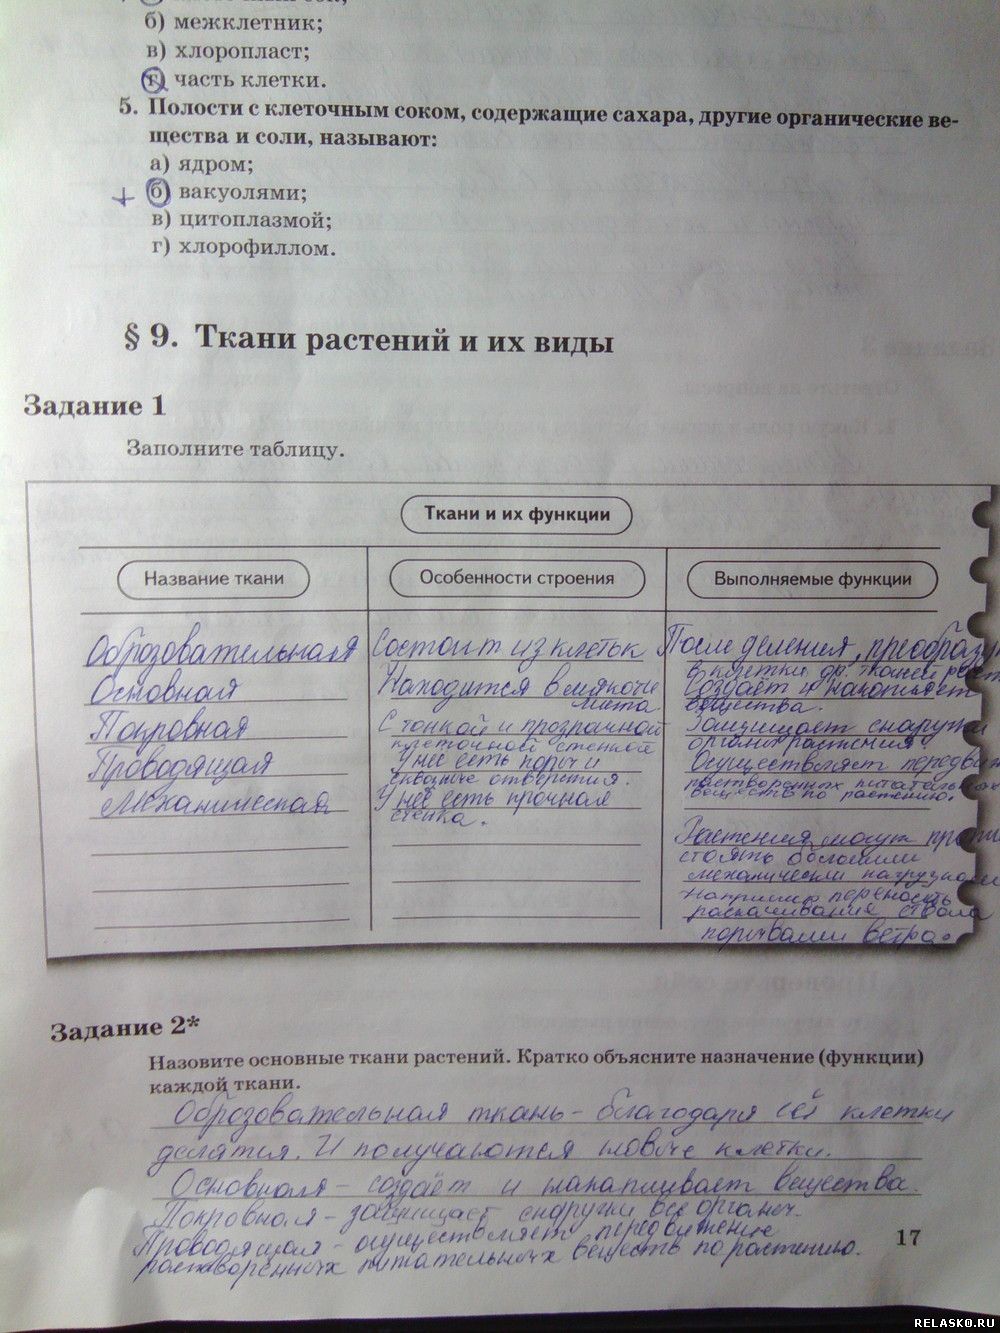 б) межклетник;
в) хлоропласт;
г) часть клетки.
5. Полости с клеточным соком, содержащие сахара, другие органические ве-
щества и соли, называют:
а) ядром;
+ б) вакуолями;
в) цитоплазмой;
г) хлорофиллом.
§ 9. Ткани растений и их виды
Задание 1
Заполните таблицу.
Ткани и их функции
Название ткани
Особенности строения
Выполняемые функции
Оброзовательная
Основная
Покровная
Проводящая
Механическая
Состоит из клетък
Находится в мякоти
листа
С тонкой и прозрачной
клеточной стенкой
У неё есть поры и
сквозные отверстия.
У неё есть прочная
стенка.
После деления, преобраз
в клетки др. тканей раст
Создаёт и накопляет
вещества.
Защищает снаружи
органы растения
Осуществляет передвиж
растворенных питательных
веществ по растению.
Растения могут проти
стоять большим
механически нагрузкам
Например переносить
раскачивания ствола
порывами ветра.
Задание 2*
Назовите основные ткани растений. Кратко объясните назначение (функции)
каждой ткани.
Оброзовательная ткань - благодаря ей клетки
делятся. И получаются новые клетки.
Основная - создаёт и накапливает вещества.
Покровная - защищает снаружи все органы.
Проводящая - осуществляет передвижение
растворенных питательных веществ по растению.
17
RELASKO.RU